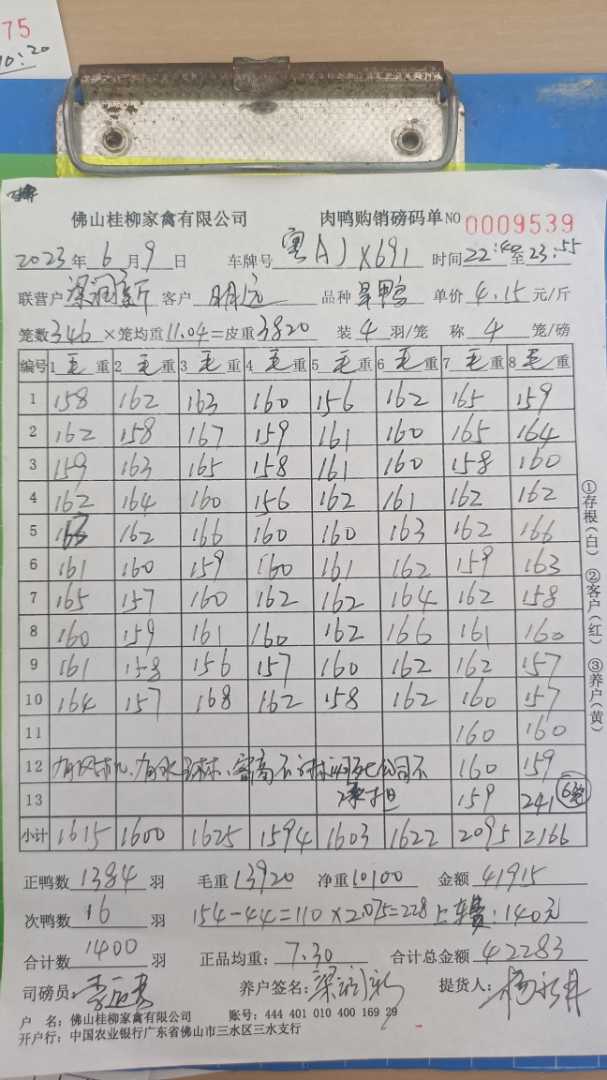 75
10:20
佛山桂柳家禽有限公司 肉鸭购销磅码单 NO 0009539
2023年6月9日 车牌号 粤AJX691 时间 22:40至23:55
联营户 梁润新 客户 明远 品种 旱鸭 单价 4.15 元/斤
笼数 346 ×笼均重 11.04 =皮重 3820 装 4 羽/笼 称 4 笼/磅
编号 1 毛 重 2 毛 重 3 毛 重 4 毛 重 5 毛 重 6 毛 重 7 毛 重 8 毛 重
1 158 162 163 160 156 162 165 159
2 162 158 167 159 161 160 165 164
3 159 163 165 158 161 160 158 160
4 162 164 160 156 162 161 162 162
5 163 162 166 160 160 163 162 166
6 161 160 159 160 161 162 159 163
7 165 157 160 162 162 164 162 158
8 160 159 161 160 162 166 161 160
9 161 158 156 157 160 162 162 157
10 164 157 168 162 158 162 160 157
11 160 160
12 有风机、有水 密高不 公司不 160 159
13 承担 159 241 6笼
小计 1615 1600 1625 1594 1603 1622 2095 2166
正鸭数 1384 羽 毛重 13920 净重 10100 金额 41915
次鸭数 16 羽 154-44=110×2.075=228 上车费:140元
合计数 1400 羽 正品均重: 7.30 合计总金额 42283
司磅员: 养户签名: 梁润新 提货人:
户 名: 佛山桂柳家禽有限公司 账号: 444 401 010 400 169 29
开户行: 中国农业银行广东省佛山市三水区三水支行
①存根(白) ②客户(红) ③养户(黄)